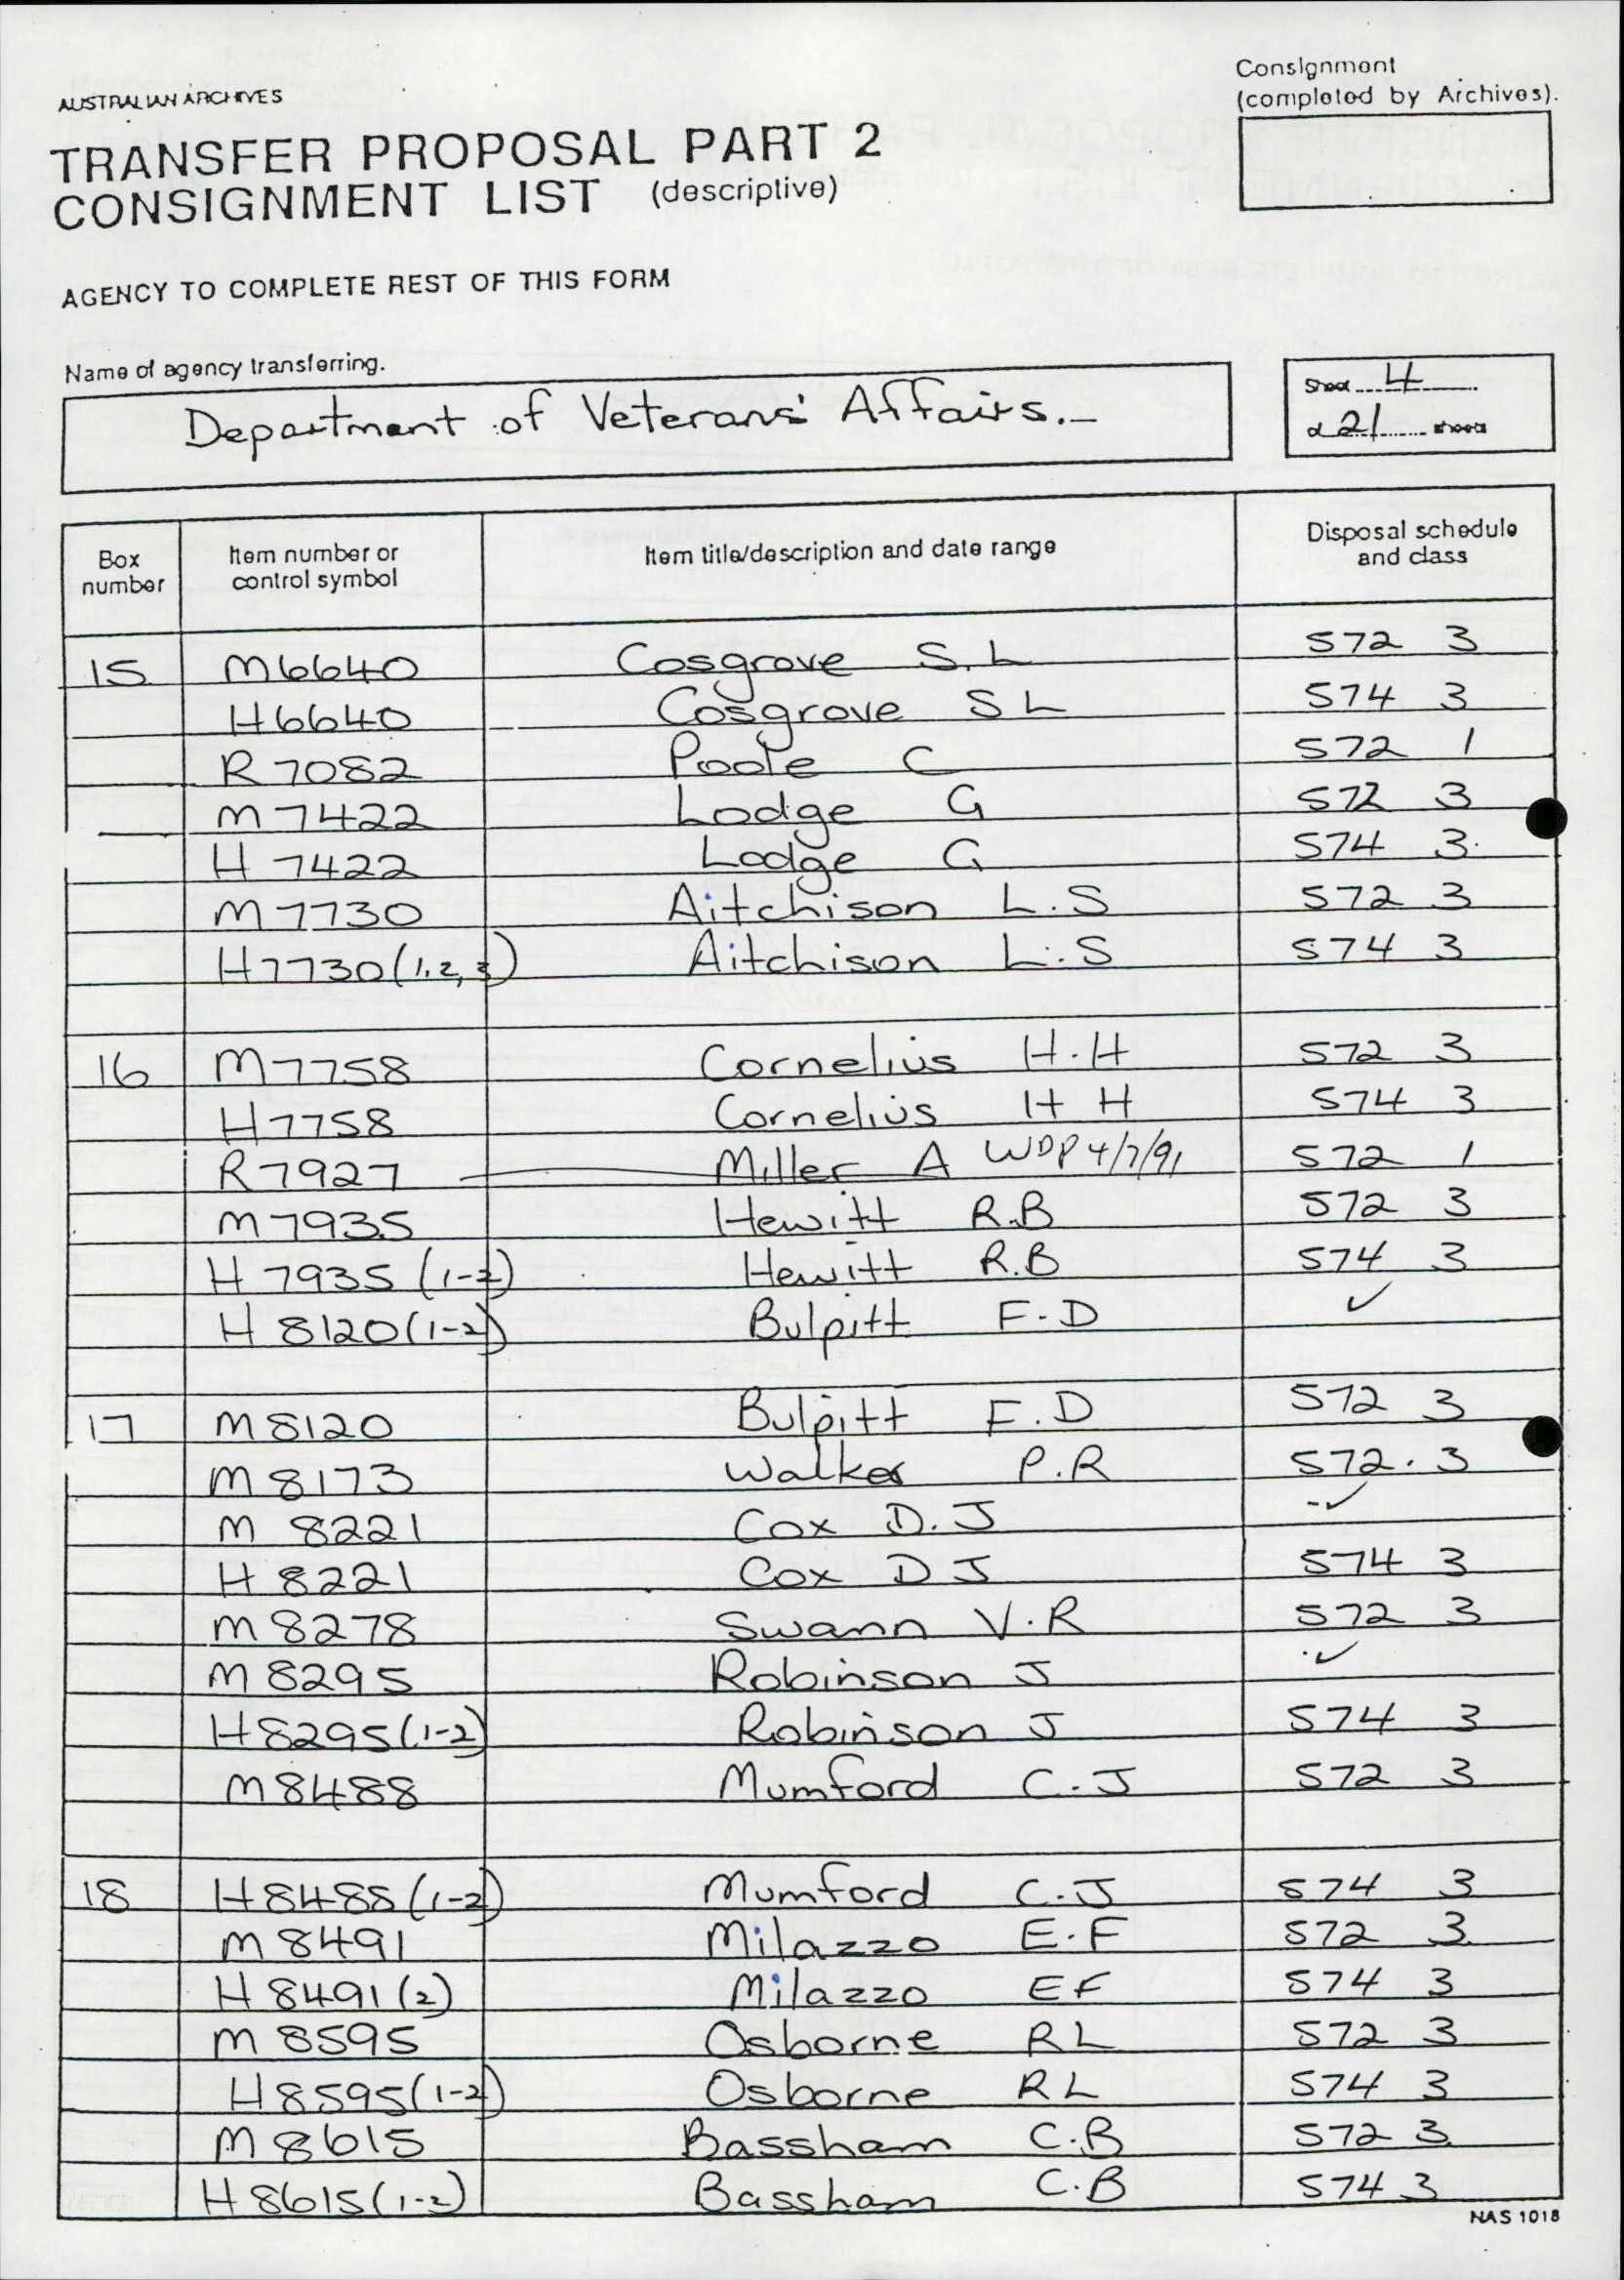 AUSTRALIAN ARCHIVES
Consignment
(completed by Archives).
TRANSFER PROPOSAL PART 2
CONSIGNMENT LIST (descriptive)
AGENCY TO COMPLETE REST OF THIS FORM
Name of agency transferring.
Department of Veterans' Affairs.-
Sheet 4
of 21 sheets
Box number
Item number or control symbol
Item title/description and date range
Disposal schedule and class
15 M6640 Cosgrove S.L 572 3
H6640 Cosgrove S L 574 3
R7082 Poole C 572 1
M7422 Lodge G 572 3
H 7422 Lodge G 574 3
M7730 Aitchison L.S 572 3
H7730(1,2,3) Aitchison L.S 574 3
16 M7758 Cornelius H.H 572 3
H7758 Cornelius H H 574 3
R7927 Miller A WDP 4/7/91 572 1
M7935 Hewitt R.B 572 3
H 7935 (1-2) Hewitt R.B 574 3
H 8120(1-2) Bulpitt F.D ✓
17 M8120 Bulpitt F.D 572 3
M8173 Walker P.R 572.3
M 8221 Cox D.J -✓
H 8221 Cox D J 574 3
M8278 Swann V.R 572 3
M8295 Robinson J ✓
H8295(1-2) Robinson J 574 3
M8488 Mumford C.J 572 3
18 H8488(1-2) Mumford C.J 574 3
M8491 Milazzo E.F 572 3
H 8491(2) Milazzo EF 574 3
M 8595 Osborne RL 572 3
H8595(1-2) Osborne RL 574 3
M 8615 Bassham C.B 572 3
H8615(1-2) Bassham C.B 574 3
NAS 1018